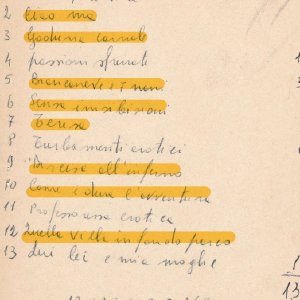 2 Ciao ma
3 Goduria carnale
4 passioni sfrenate
5 Biancaneve e i 7 nani
6 Senza inibizioni
7 Teresa
8 Turbamenti erotici
9 "Discesa all'inferno
10 Come è dura l'avventura
11 Professoressa erotica
12 Quella villa in fondo parco
13 lui lei e mia moglie
13